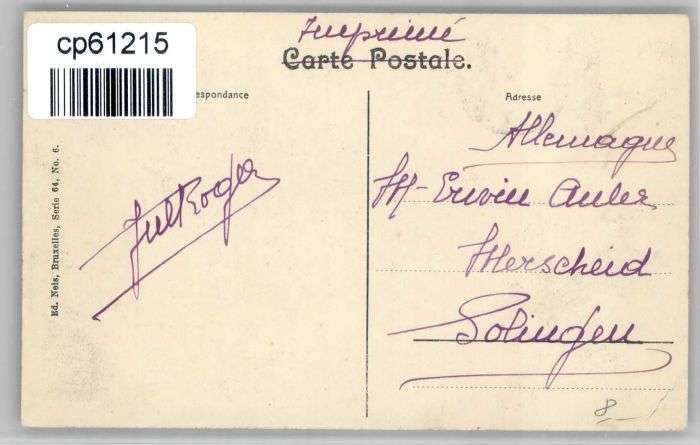 cp61215
Imprimé
Carte Postale.
espondance
Adresse
Allemagne
M- Erwin Auler
Merscheid
Solingen
Ed. Nels, Bruxelles, Serie 64, No. 6.
8